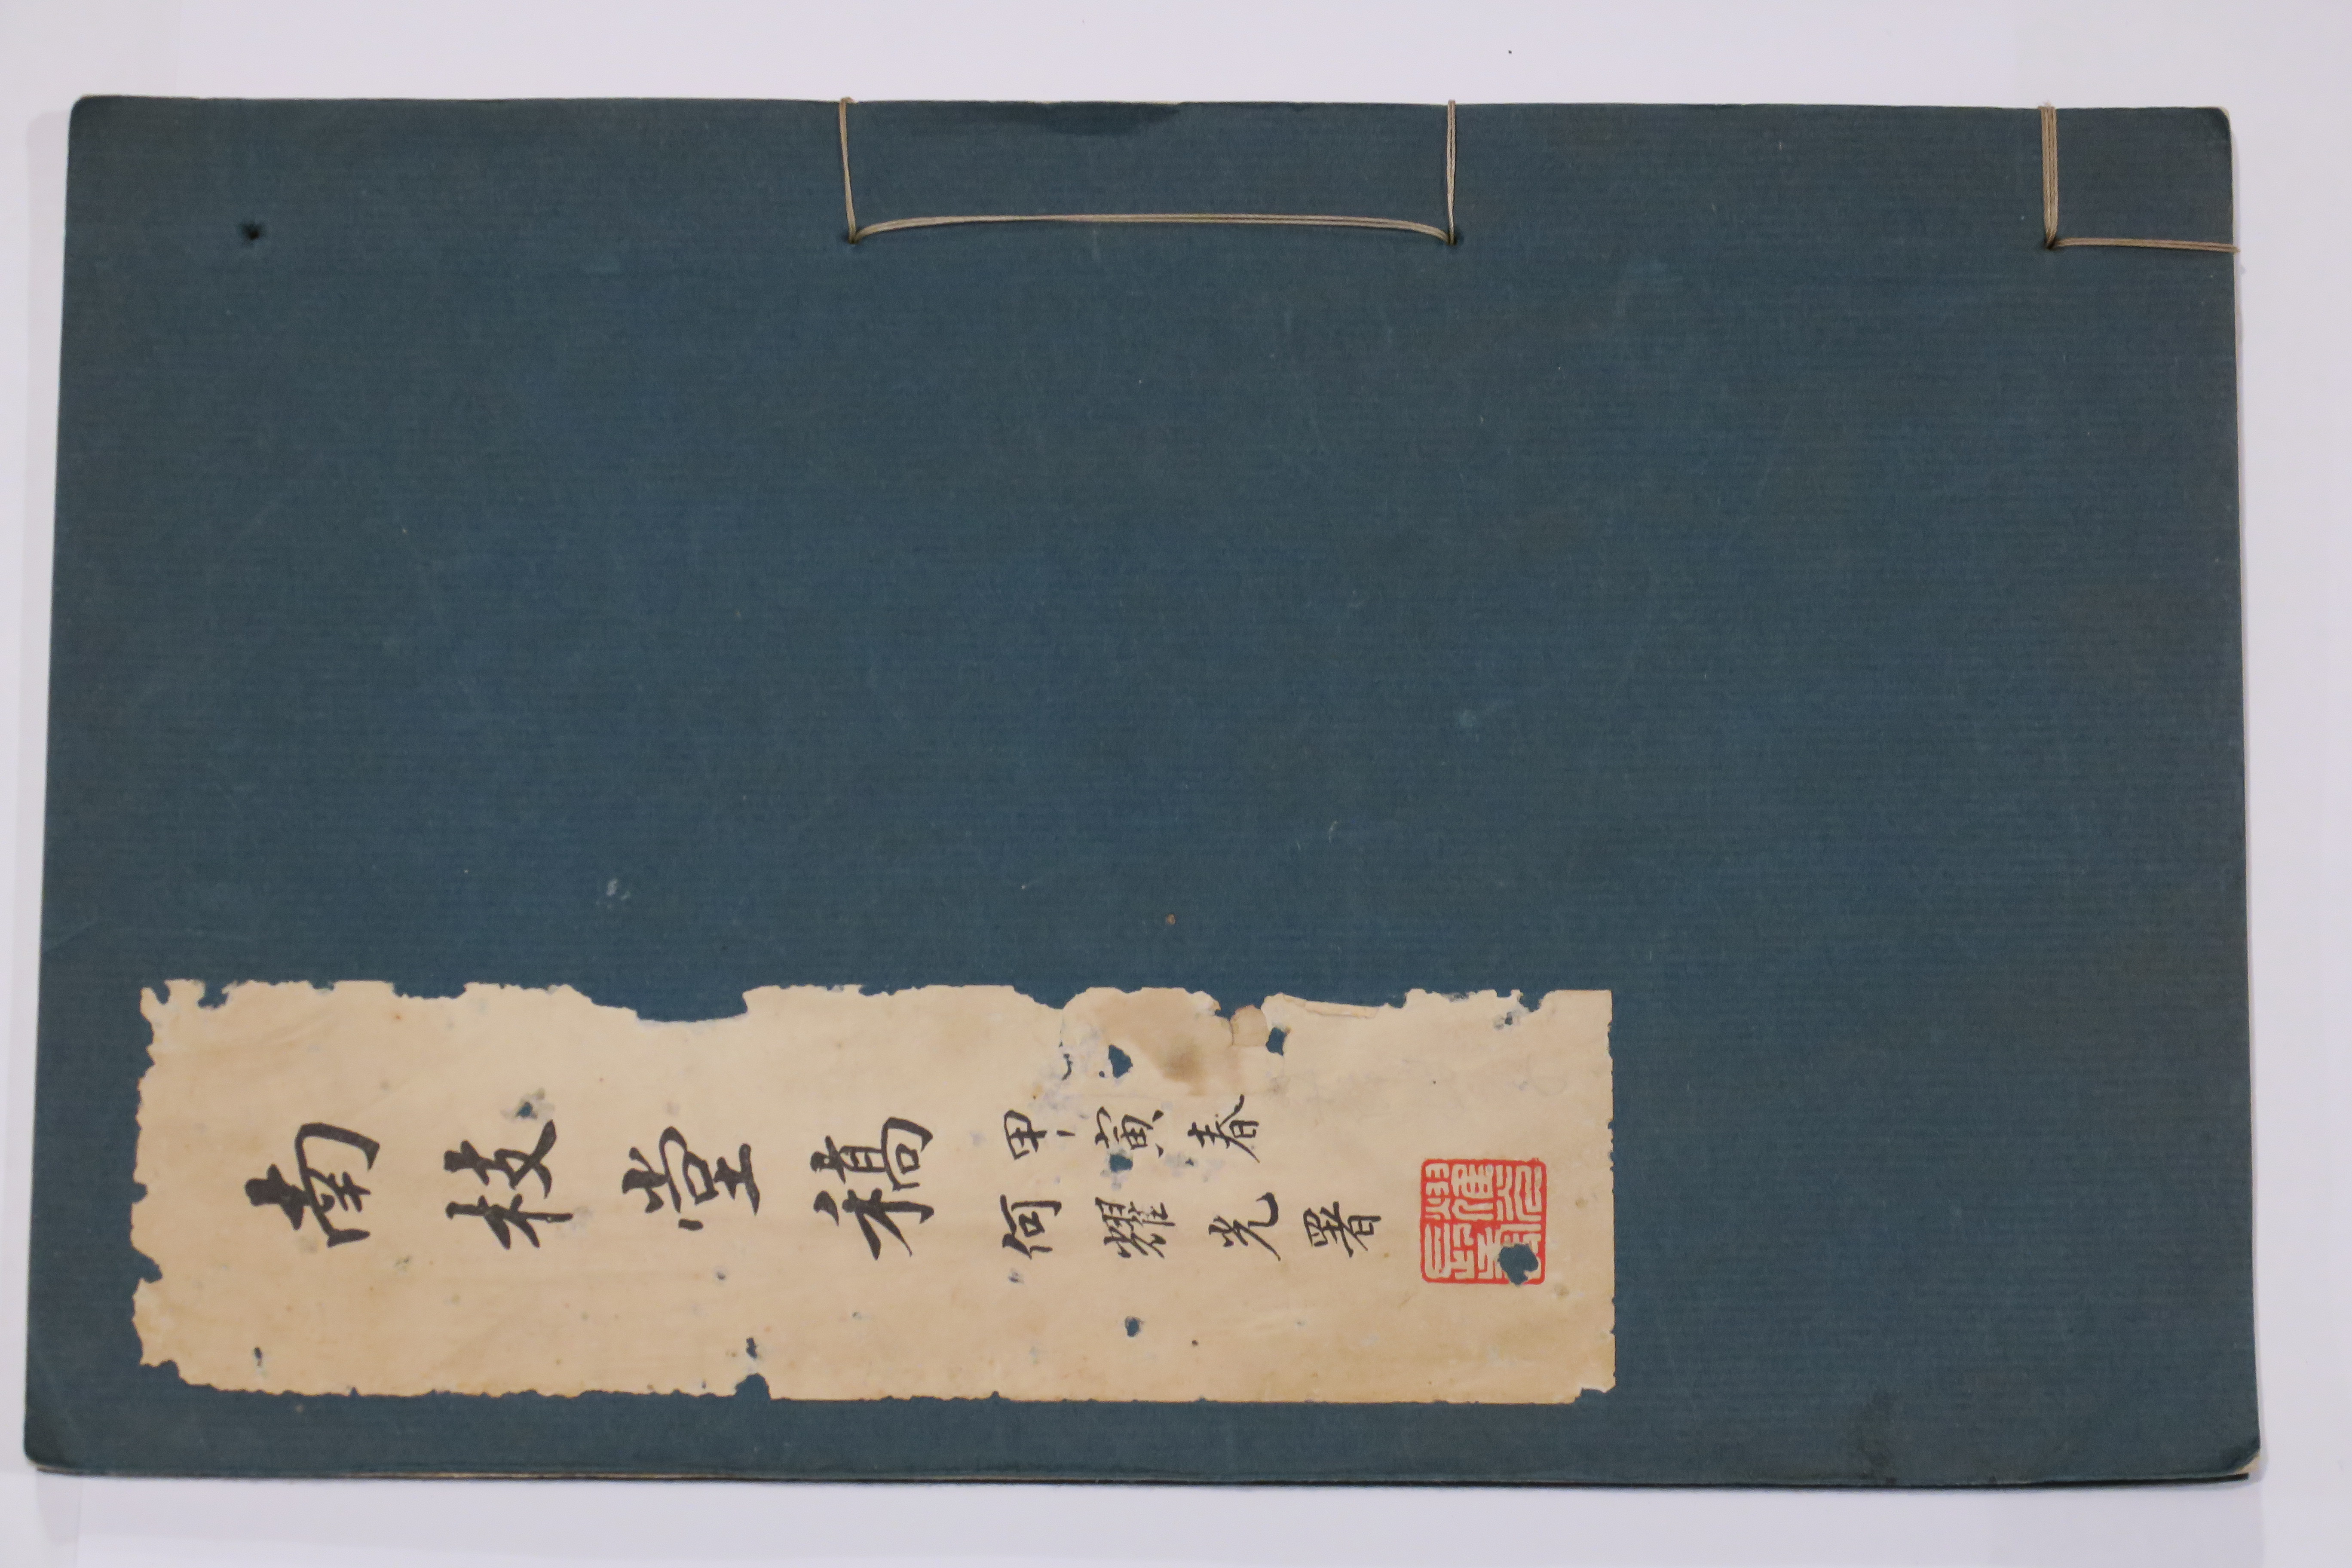 南枝堂稿
甲寅春
何耀光署